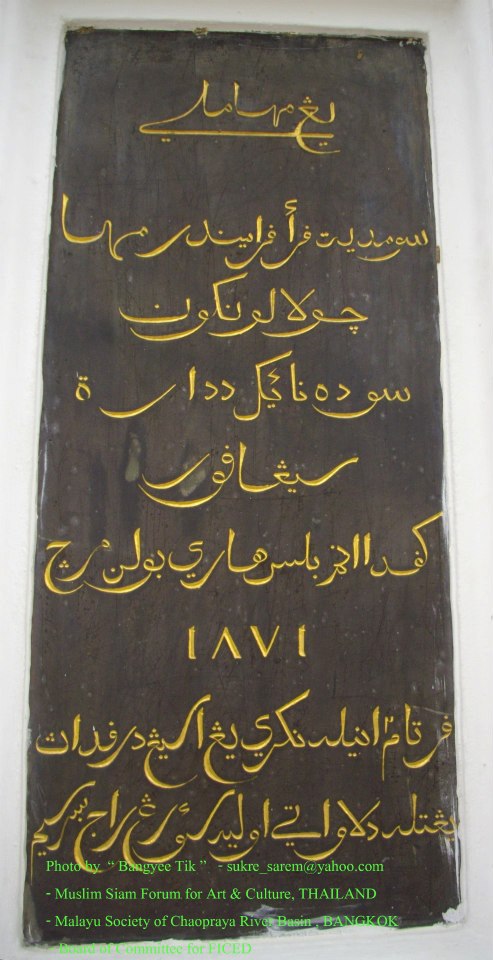 يڠ مها ملي
سومديت ڤرأ ڤرابيندر مها
چولالونكون
سوده نائيكل ددارة
سيڠاڤور
كڤد اانم بلس هاري بولن مرچ
١٨٧١
ڤرتام انيله نكري يڠ
يڠتله دلاواتي اوليه سئورڠ راج
Photo by “ Bangyee Tik ” - sukre_sarem@yahoo.com
- Muslim Siam Forum for Art & Culture, THAILAND
- Malayu Society of Chaopraya River Basin , BANGKOK
- Board of Committee for FICED